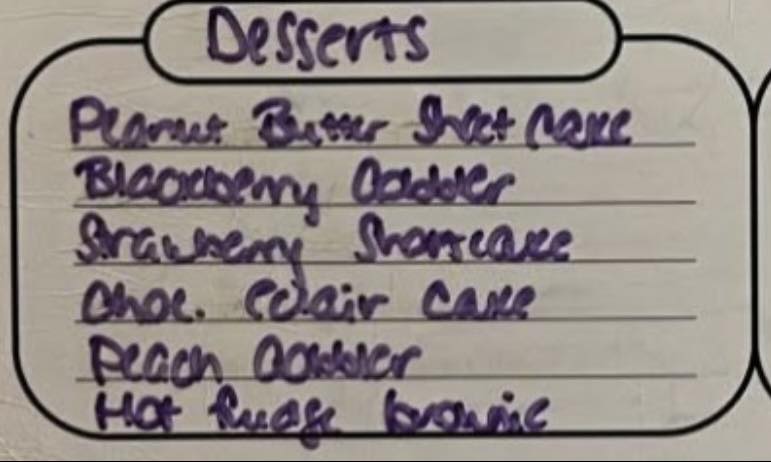 Desserts
Peanut Butter Sheet Cake
Blackberry Cobbler
Strawberry Shortcake
Choc. Eclair Cake
Peach Cobbler
Hot fudge brownie